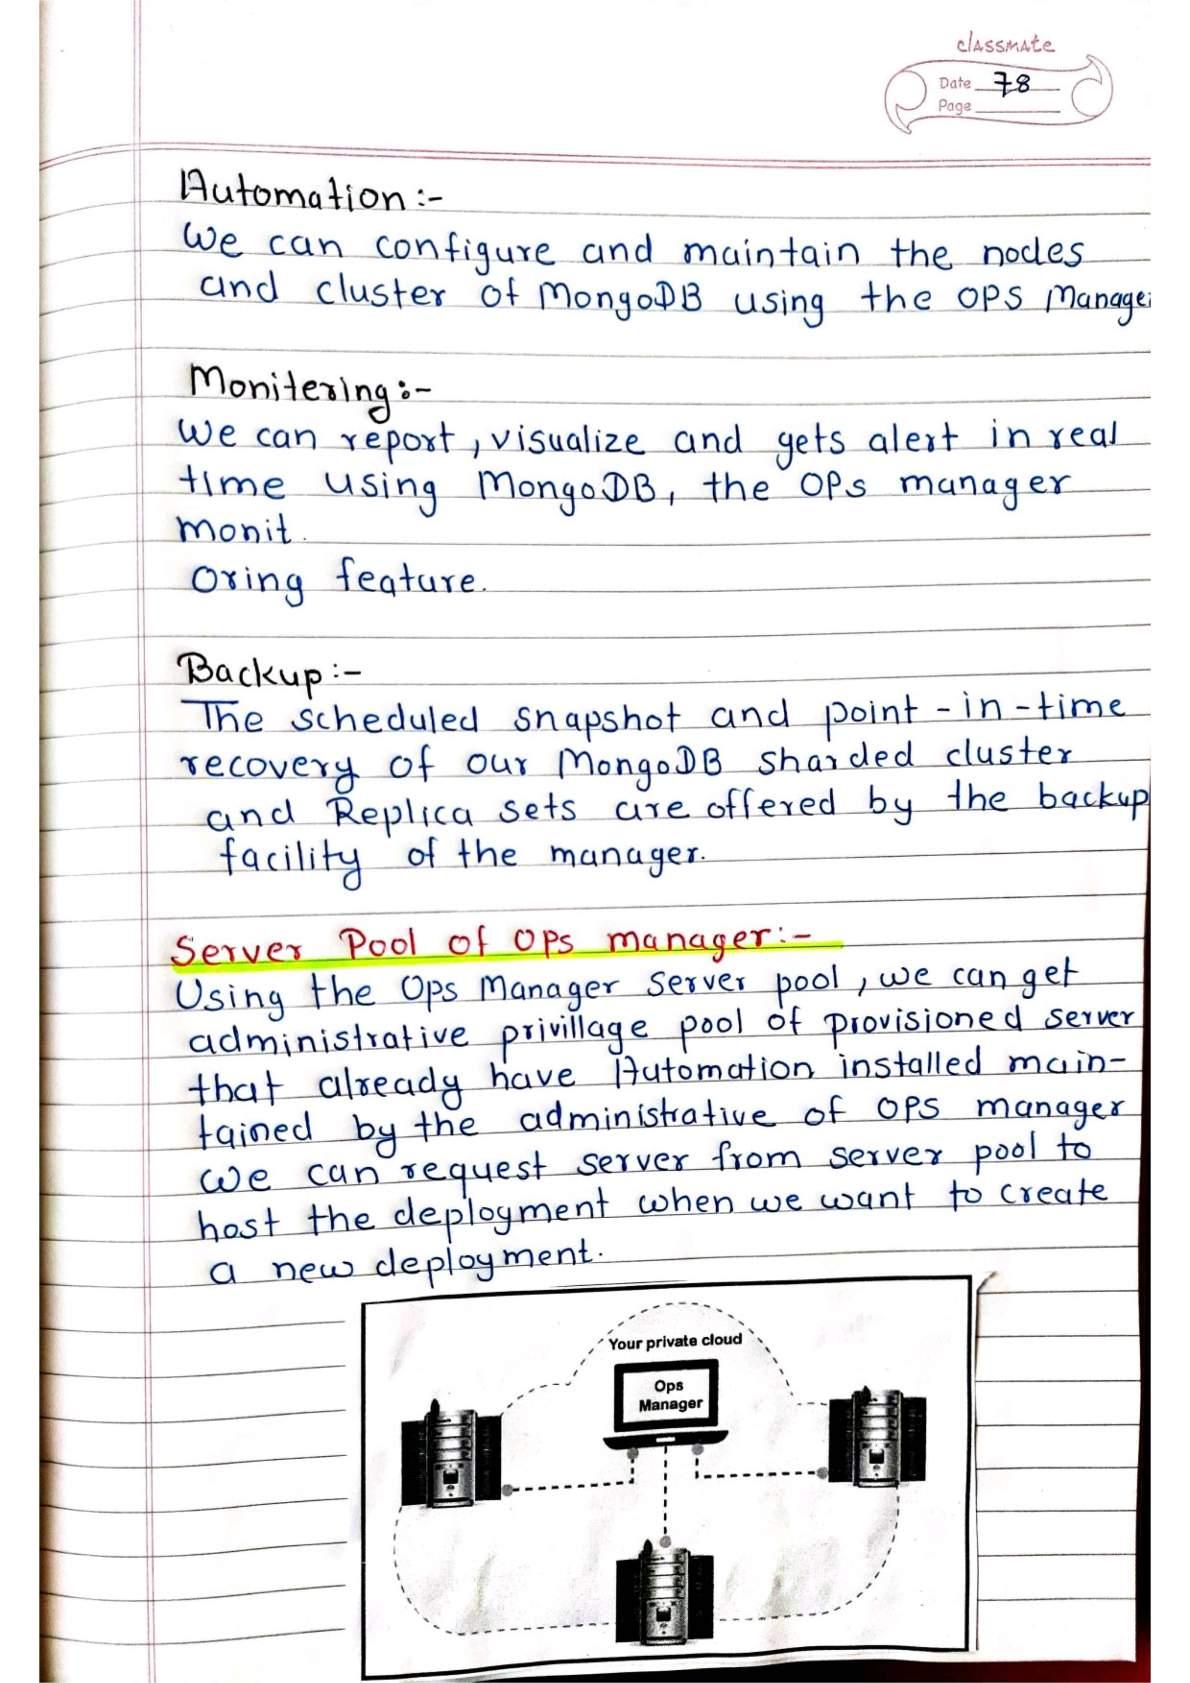 classmate
Date 78
Page
Automation :-
We can configure and maintain the nodes
and cluster of MongoDB using the OPS Manager
Monitering :-
We can report, visualize and gets alert in real
time using MongoDB, the OPs manager
monit.
oring feature.
Backup :-
The scheduled snapshot and point-in-time
recovery of our MongoDB sharded cluster
and Replica sets are offered by the backup
facility of the manager.
Server Pool of OPs manager :-
Using the Ops Manager Server pool, we can get
administrative privillage pool of provisioned server
that already have Automation installed main-
tained by the administrative of OPS manager
we can request server from server pool to
host the deployment when we want to create
a new deployment.
Your private cloud
Ops
Manager